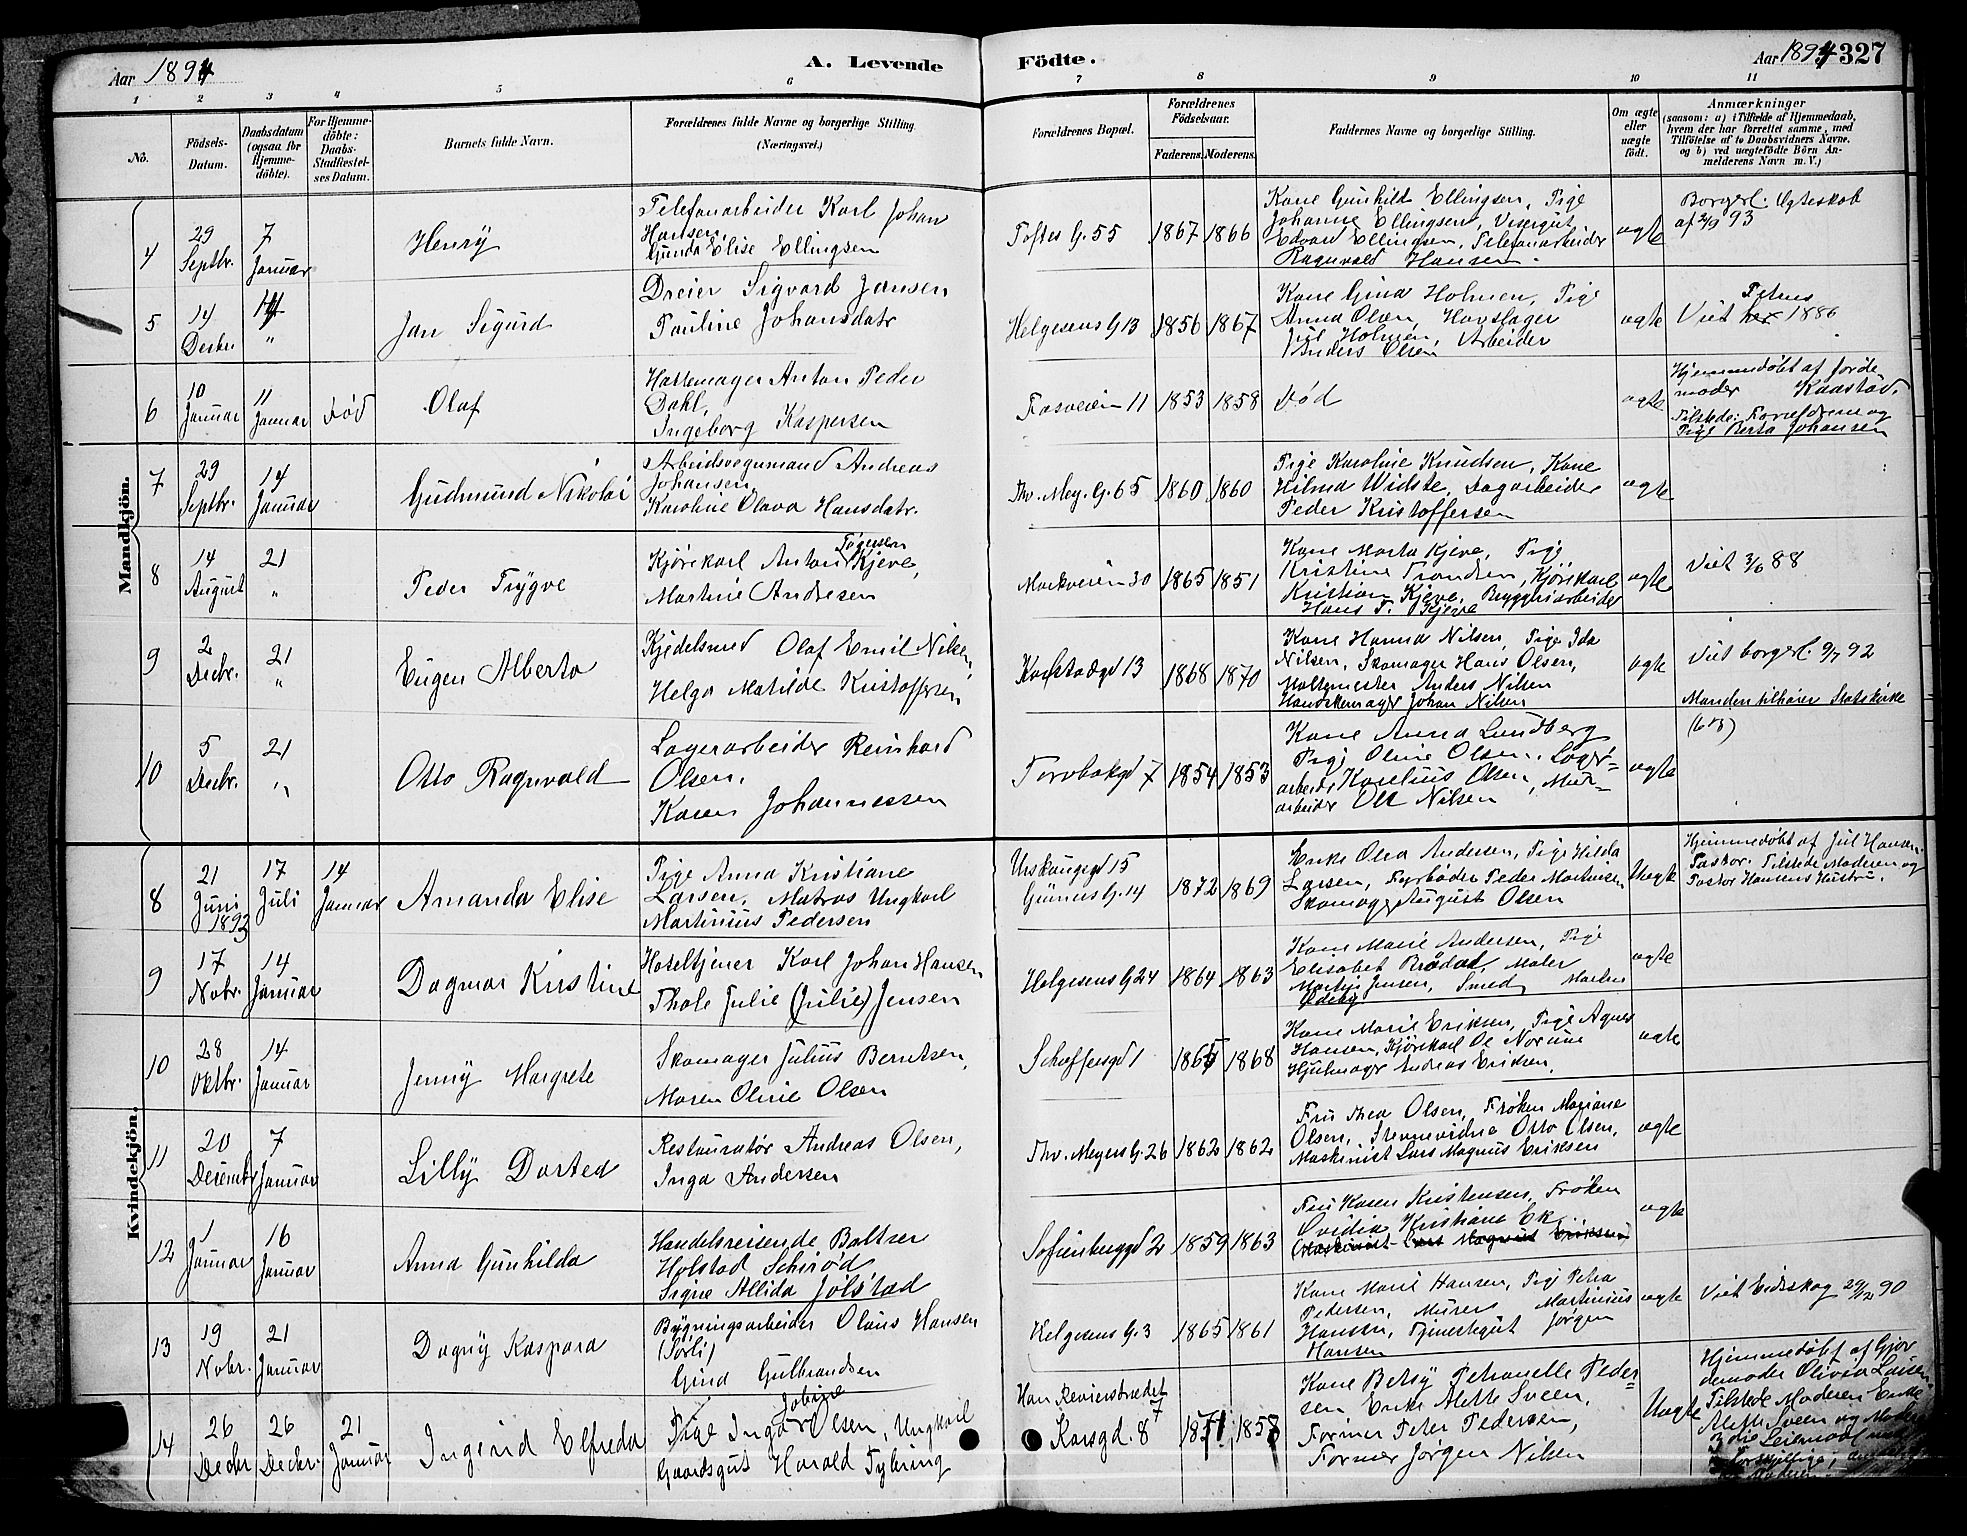 Aar 1894
A. Levende
Födte.
Aar 1894
327
1 2 3 4 5 6 7 8 9 10 11
No.
Födsels-
Datum.
Daabsdatum
(ogsaa for
Hjemme-
döbte).
For Hjemme-
döbte:
Daabs-
Stadfæstel-
ses Datum.
Barnets fulde Navn.
Forældrenes fulde Navne og borgerlige Stilling.
(Næringsvei.)
Forældrenes Bopæl.
Forældrenes
Födselsaar.
Faderens. Moderens.
Faddernes Navne og borgerlige Stilling.
Om ægte
eller
uægte
født.
Anmærkninger
(saasom: a) i Tilfælde af Hjemmedaab,
hvem der har forrettet samme, med
Tilföielse af to Daabsvidners Navne.
og b) ved uægtefödte Börn An-
melderens Navn m. V.)
Mandkjön.
4
29
Septbr.
7
Januar
Henry
Telefonarbeider Karl Johan
Hansen,
Gunda Elise Ellingsen
Toftes G. 55
1867 1866
Kone Gunhild Ellingsen, Pige
Johanne Ellingsen, Visergut
Edvard Ellingsen, Telefonarbeider
Ragnvald Hansen.
ægte
Borgerl. Ægteskab
af 93
5
14
Decbr.
14
"
Jan Sigurd
Dreier Sigvard Jansen
Pauline Johansdatr
Helgesens G 13
1856 1867
Kone Gina Holmen, Pige
Anna Olsen, Hovslager
Juel Holmen, Arbeider
Anders Olsen
ægte
Petrus
Viet her 1886
6
10
Januar
11
Januar
død
Olaf
Hattemager Anton Peder
Dahl,
Ingeborg Kaspersen
Fosveien 11
1853 1858
død
ægte
Hjemmedøbt af Jorde-
moder Kaastad.
Tilstede: Forældrene og
Pige Berta Johansen
7
29
Septbr.
14
Januar
Gudmund Nikolai
Arbeidsvognmand Andreas
Johansen,
Karoline Olava Hansdatr.
Thv. Mey. G. 65
1860 1860
Pige Karoline Knudsen, Kone
Hilma Widste, Dagarbeider
Peder Kristoffersen
ægte
8
14
August
21
"
Peder Trygve
Tøgersen
Kjørekarl Anton Kjeve,
Martine Andresen
Markveien 30
1865 1851
Kone Marta Kjeve, Pige
Kristine Trondsen, Kjørekarl
Kristian Kjeve, Bryggeriarbeider
Hans T. Kjeve
ægte
Viet 3/6 88
9
2
Decbr.
21
"
Eugen Alberto
Kjedelsmed Olaf Emil Nilsen,
Helga Matilde Kristoffersen
Karlstadgd 13
1868 1870
Kone Hanna Nilsen, Pige Ida
Nilsen, Skomager Hans Olsen,
Maltemester Anders Nilsen
Handskemager Johan Nilsen
ægte
Viet borgerl. 9/7 92
Manden tilhører Statskirke
10
5
Decbr.
21
"
Otto Ragnvald
Lagerarbeider Reinhard
Olsen.
Karen Johannessen
Torvbakgd 7
1854 1853
Kone Anna Lundberg
Pige Oline Olsen, Lager-
arbeid, Karelius Olsen, Mur-
arbeider Ole Nilsen
ægte
Kvindekjön.
8
21
Juni
1893
17
Juli
14
Januar
Amanda Elise
Pige Anna Kristiane
Larsen, Matros Ungkarl
Martinius Pedersen
Urskougsgd 15
Grüners G. 14
1872 1869
Enke Olea Andersen, Pige Hilda
Larsen, Fyrbøder Peder Martinsen
Skomager August Olsen
Uægte
Hjemmedøbt af Jul Hansen
Pastor. Tilstede Moderen og
Pastor Hansens Hustru.
9
17
Nobr.
14
Januar
Dagmar Kristine
Hoteltjener Karl Johan Hansen
Thale Julie (Julie) Jensen
Helgesens G 24
1864 1863
Kone Marie Andersen, Pige
Elisabet Brødal, Maler
Martin Jensen, Smed Martin
Udeby
ægte
10
28
Oktbr.
14
Januar
Jenny Margrete
Skomager Julius Berntsen,
Maren Oline Olsen
Scheffersgd 1
1865 1868
Kone Marie Eriksen, Pige Agnes
Hansen, Kjørekarl Ole Norum
Hjulmager Andreas Eriksen,
ægte
11
20
Decembr
7
Januar
Lilly Dorted
Restauratør Andreas Olsen,
Inga Andersen
Thv. Meyers G. 26
1862 1862
Fru Thea Olsen, Frøken Mariane
Olsen, Stevnevidne Otto Olsen,
Maskinist Lars Magnus Eriksen
ægte
12
1
Januar
16
Januar
Anna Gunhilda
Handelsreisende Baltzer
Holstad Schirød
Signe Allida Jølstad
Sofienberggd 2
1859 1863
Fru Karen Kristensen, Frøken
Ovidia Kristiane Ek
Maskinist Lars Magnus Eriksen
ægte
13
19
Nobr.
21
Januar
Dagny Kaspara
Bygningsarbeider Olaus Hansen
(Sørli)
Gina Gulbrandsen
Helgesens G. 3
1865 1861
Kone Marie Hansen, Pige Petra
Pedersen, Murer Martinius
Hansen, Tjenestegut Jørgen
Hansen
ægte
Viet Eidsskog 29/12 90
14
26
Decbr
26
Decbr.
21
Januar
Ingerid Elfrida
Jobine
Pige Inga Olsen, Ungkarl
Gaardsgut Harald Fybring
Han Revierstrædet
7
Korsgd. 8
1871 1857
Kone Betsy Petronelle Peder-
sen Enke Alette Sveen,
Former Peter Pedersen,
Former Jørgen Nilsen
Uægte
Hjemmedøbt af Gjor
demoder Olivia Larsen
Tilstede Moderen Enke
Alette Sveen og